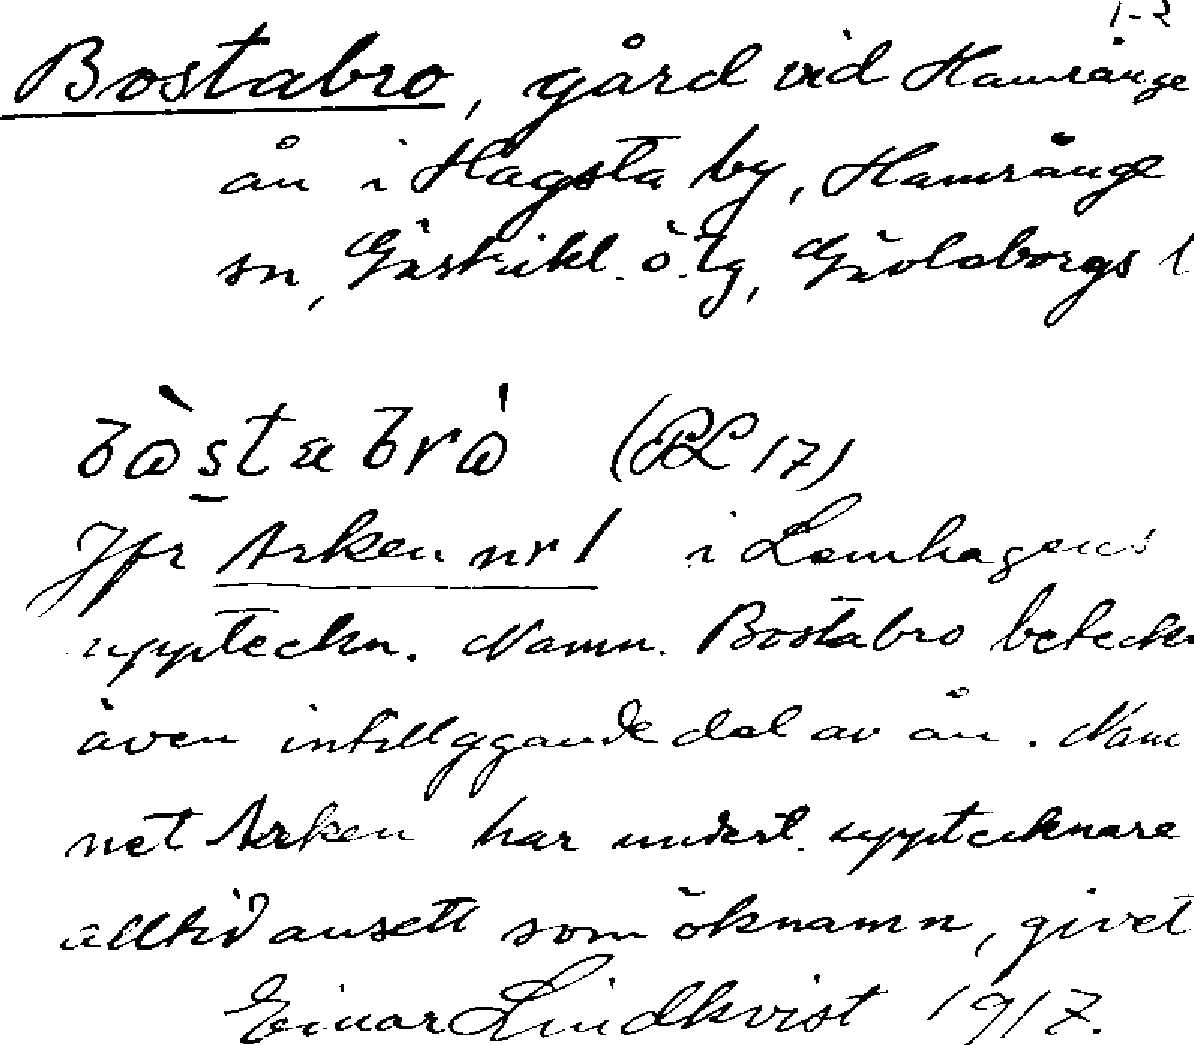 1-2
Bostabro, gård vid Hamrånge
ån i Hagsta by, Hamrånge
sn, Gästrikl. ö. tg, Gävleborgs l
bòstabró (RL 17)
Jfr Arken nr 1 i Lenhagens
uppteckn. Namn. Bostabro beteckn
även intilliggande del av ån. Nam
net Arken har undert. upptecknare
alltid ansett som öknamn, givet
Einar Lindkvist 1917.